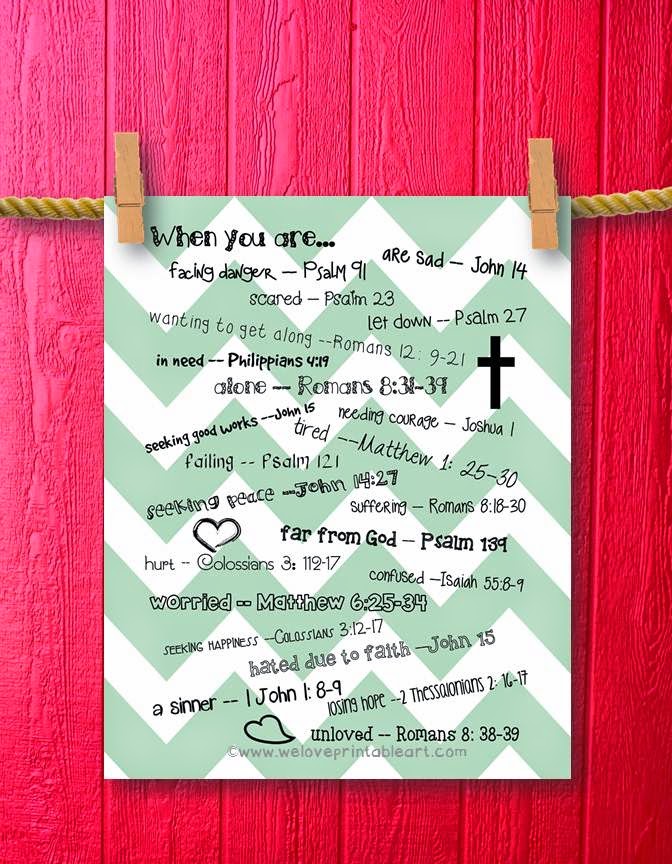 When you are...
are sad — John 14
facing danger — Psalm 91
scared — Psalm 23
let down — Psalm 27
wanting to get along --Romans 12: 9-21
in need -- Philippians 4:19
alone -- Romans 8:31-39
seeking good works --John 15
needing courage — Joshua 1
tired --Matthew 1: 25-30
failing -- Psalm 121
seeking peace --John 14:27
suffering — Romans 8:18-30
far from God — Psalm 139
hurt -- Colossians 3: 112-17
confused —Isaiah 55:8-9
worried -- Matthew 6:25-34
seeking happiness --Colossians 3:12-17
hated due to faith —John 15
a sinner -- 1 John 1: 8-9
losing hope --2 Thessalonians 2: 16-17
unloved -- Romans 8: 38-39
©www.weloveprintableart.com